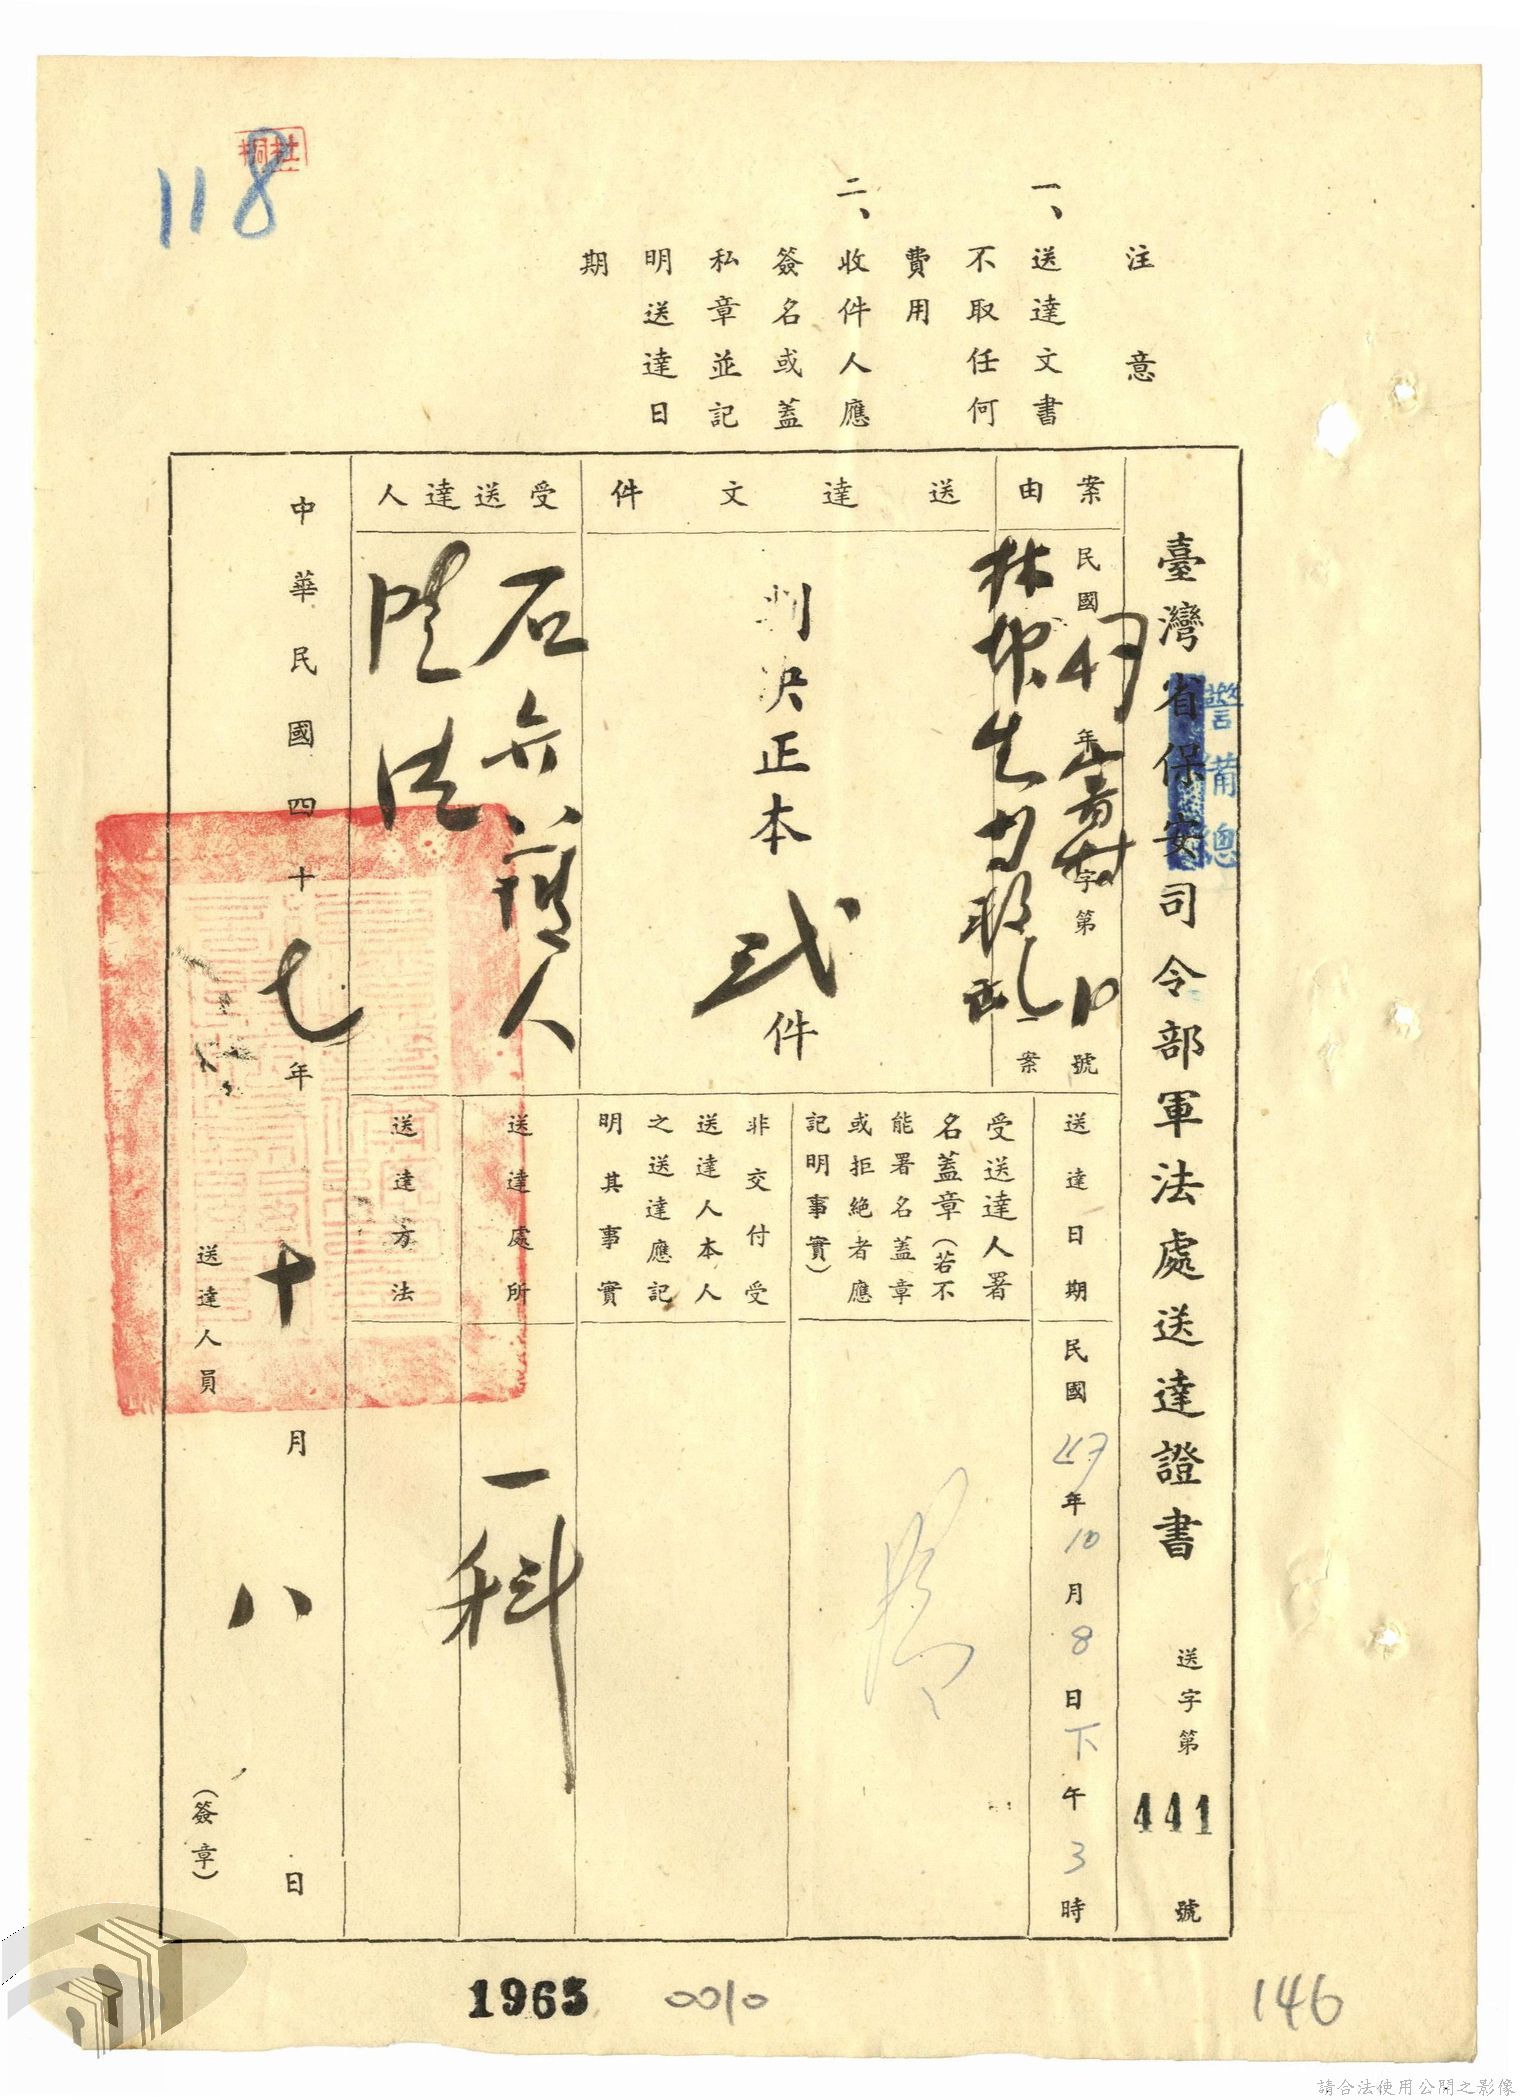 118
注意
一、送達文書
不取任何
費用
二、收件人應
簽名或蓋
私章並記
明送達日
期
臺灣省保安司令部軍法處送達證書
警備總
送字第441號
案由
民國47年字第10號
林生一案
送達文件
判決正本
弍件
受送達人
石人
送達日期
民國47年10月8日下午3時
受送達人署
名蓋章(若不
能署名蓋章
或拒絕者應
記明事實)
非交付受
送達人本人
之送達應記
明其事實
送達處所
一科
送達方法
中華民國四十七年十月八日
送達人員
(簽章)
1965
0010
146
請合法使用公開之影像